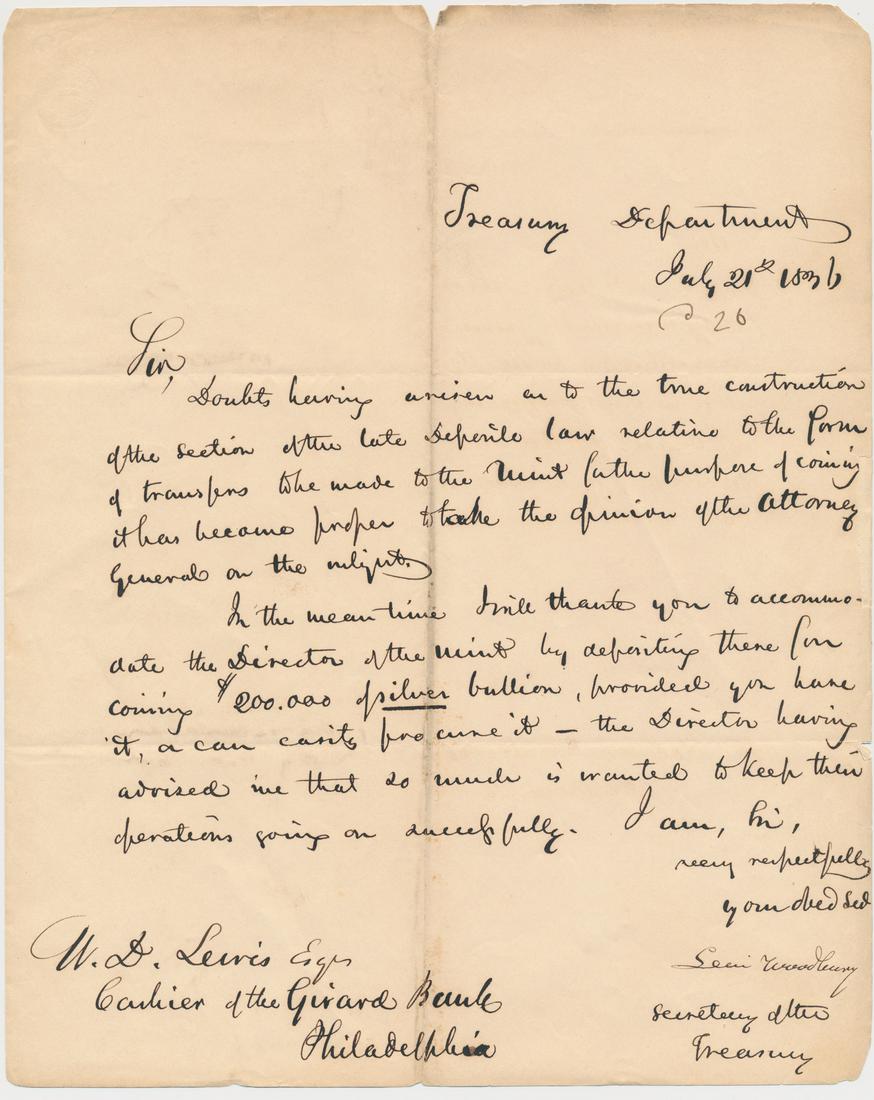 Treasury Department
July 21st 1836
26
Sir,
Doubts having arisen as to the true construction
of the section of the late Deposite law relative to the form
of transfers to be made to the Mint for the purpose of coining
it has become proper to take the opinion of the Attorney
General on the subject.
In the mean time I will thank you to accommo-
date the Director of the mint by depositing there for
coining $200.000 of silver bullion, provided you have
it, or can easily procure it — the Director having
advised me that so much is wanted to keep their
operations going on successfully. I am, Sir,
very respectfully
your obed Sert
Levi Woodbury
secretary of the
Treasury
W. D. Lewis Esqr
Cashier of the Girard Bank
Philadelphia